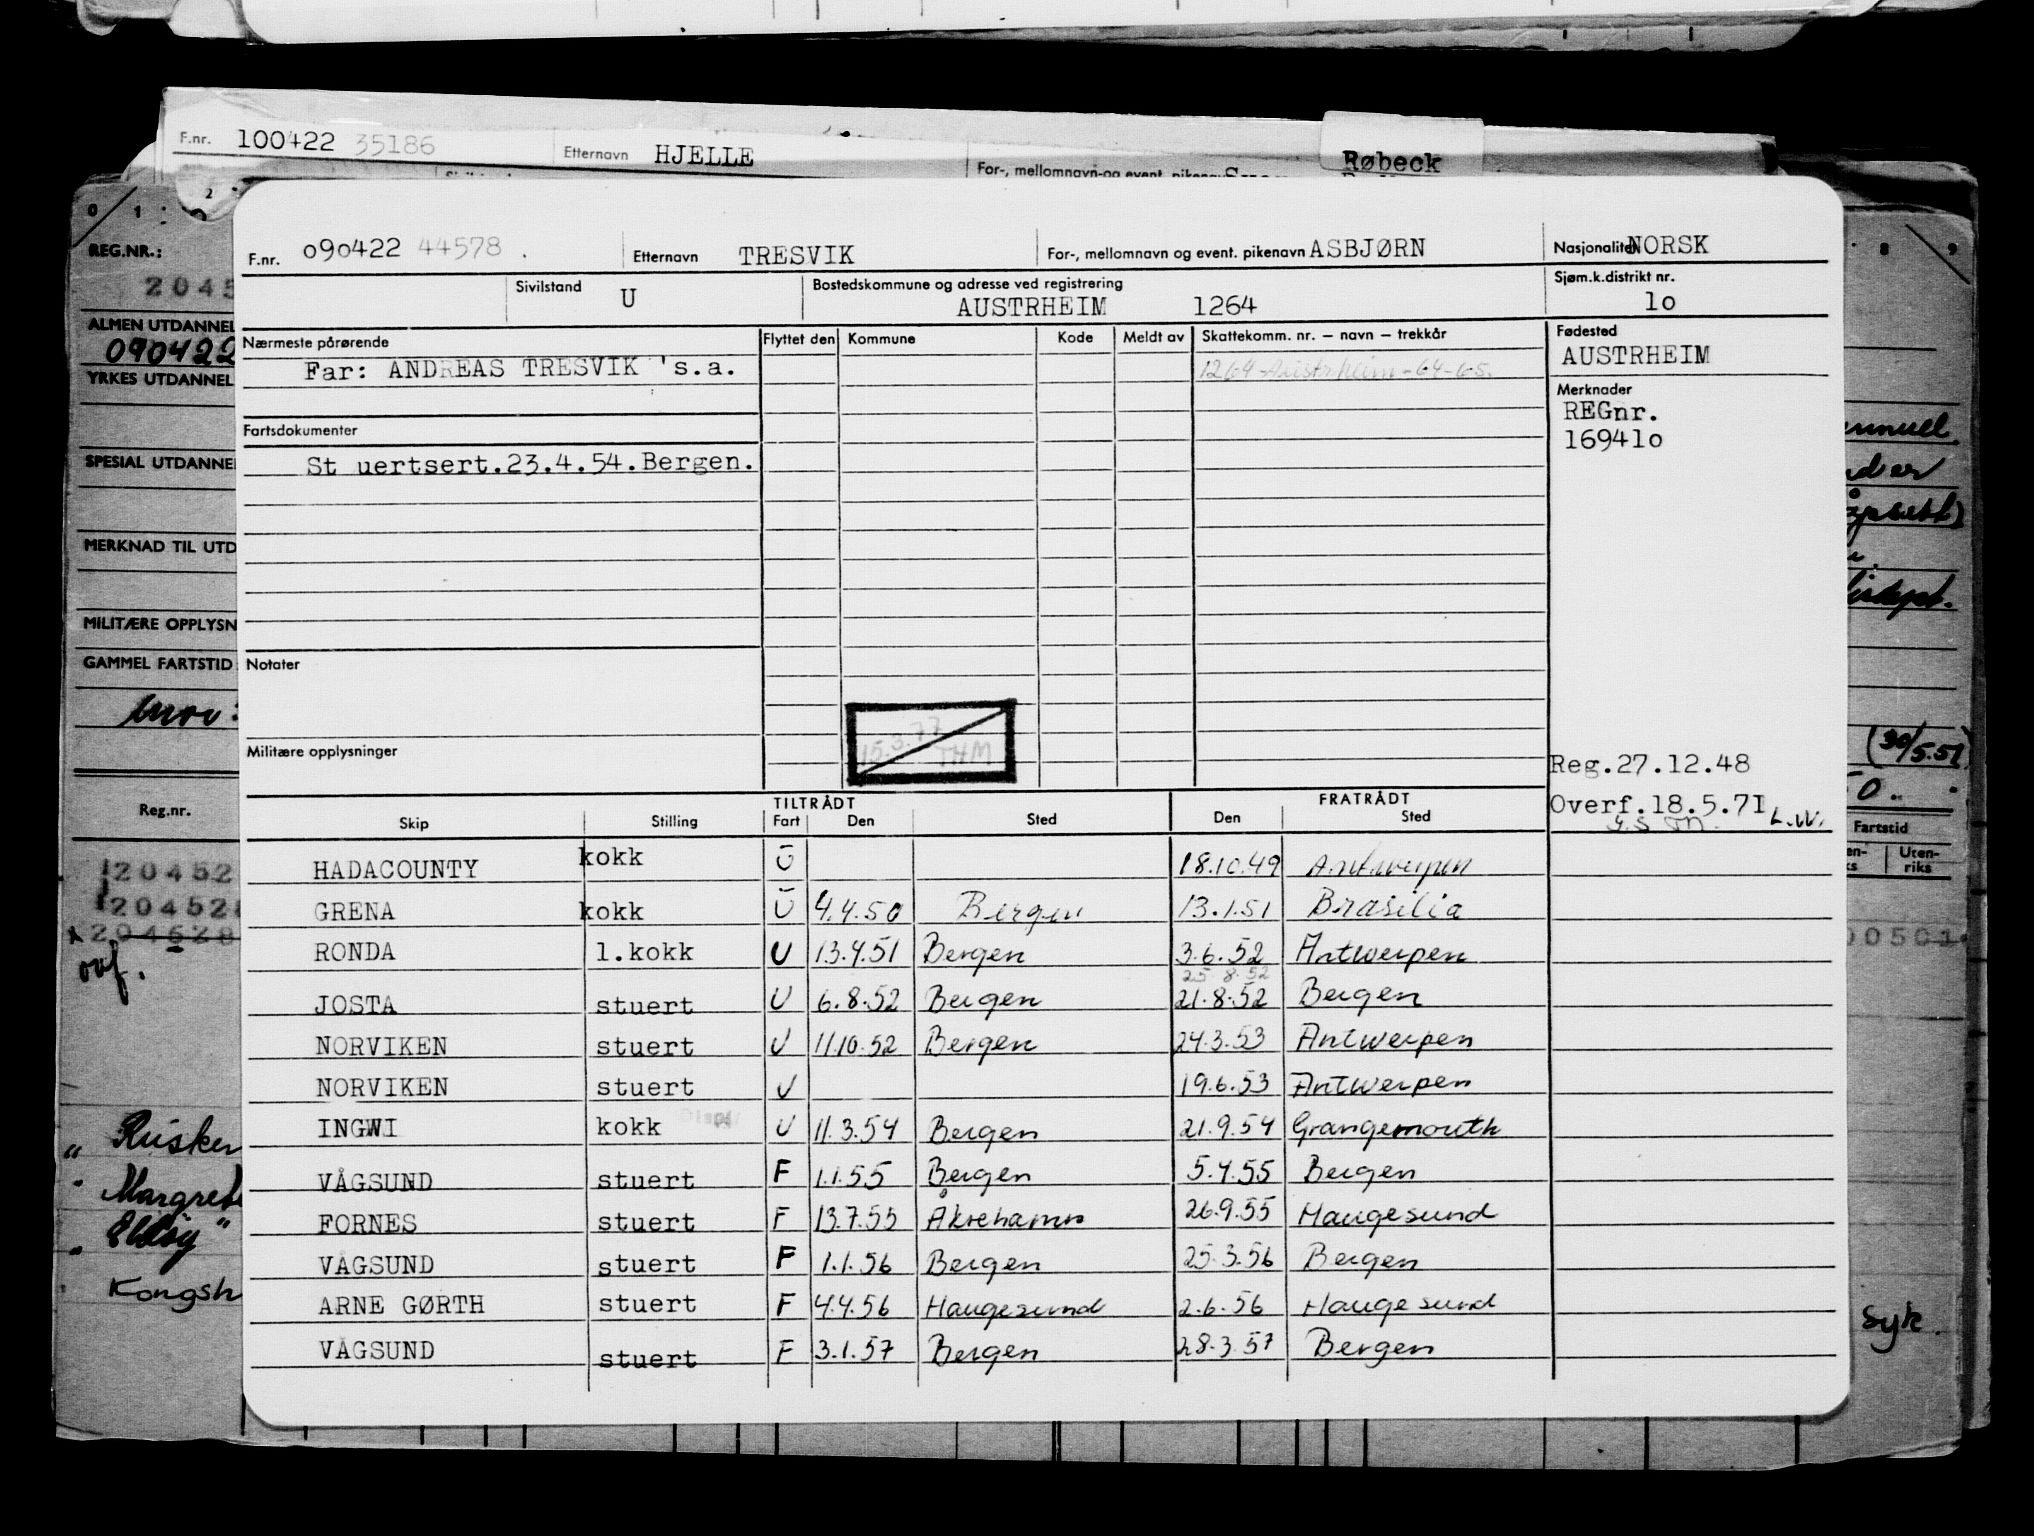 F.nr. 100422 35186 Etternavn HJELLE For-, mellomnavn og event. pikenavn
Røbeck
0 1 2 8 9
REG.NR.:
2045
ALMEN UTDANNEL
090422
YRKES UTDANNEL
SPESIAL UTDANNE
MERKNAD TIL UTD
MILITÆRE OPPLYSN
GAMMEL FARTSTID
Reg.nr.
120452
120452
204528
ovf.
" Risken
" Margret
" Eldøy"
Kongsh
F.nr. 090422 44578 Etternavn TRESVIK For-, mellomnavn og event. pikenavn ASBJØRN Nasjonalitet NORSK
Sivilstand U Bostedskommune og adresse ved registrering AUSTRHEIM 1264 Sjøm.k.distrikt nr. 1o
Nærmeste pårørende Flyttet den Kommune Kode Meldt av Skattekomm. nr. – navn – trekkår Fødested
Far: ANDREAS TRESVIK 's.a. 1264 Austrheim-64-65. AUSTRHEIM
Merknader
REGnr.
16941o
Fartsdokumenter
St uertsert.23.4.54.Bergen.
Notater
15.3.77 THM
Militære opplysninger
Reg.27.12.48
Overf.18.5.71 L.W.
TILTRÅDT FRATRÅDT
Skip Stilling Fart Den Sted Den Sted
HADACOUNTY kokk U 18.10.49 Antwerpen
GRENA kokk U 4.4.50 Bergen 13.1.51 Brasilia
RONDA 1.kokk U 13.4.51 Bergen 3.6.52 Antwerpen
25 8 52
JOSTA stuert U 6.8.52 Bergen 21.8.52 Bergen
NORVIKEN stuert U 11.10.52 Bergen 24.3.53 Antwerpen
NORVIKEN stuert U 19.6.53 Antwerpen
INGWI kokk U 11.3.54 Bergen 21.9.54 Grangemouth
VÅGSUND stuert F 1.1.55 Bergen 5.4.55 Bergen
FORNES stuert F 13.7.55 Åkrehamn 26.9.55 Haugesund
VÅGSUND stuert F 1.1.56 Bergen 25.3.56 Bergen
ARNE GØRTH stuert F 4.4.56 Haugesund 2.6.56 Haugesund
VÅGSUND stuert F 3.1.57 Bergen 28.3.57 Bergen
(30/5.51)
50.
Fartstid
Uten-
riks
00501
syk.